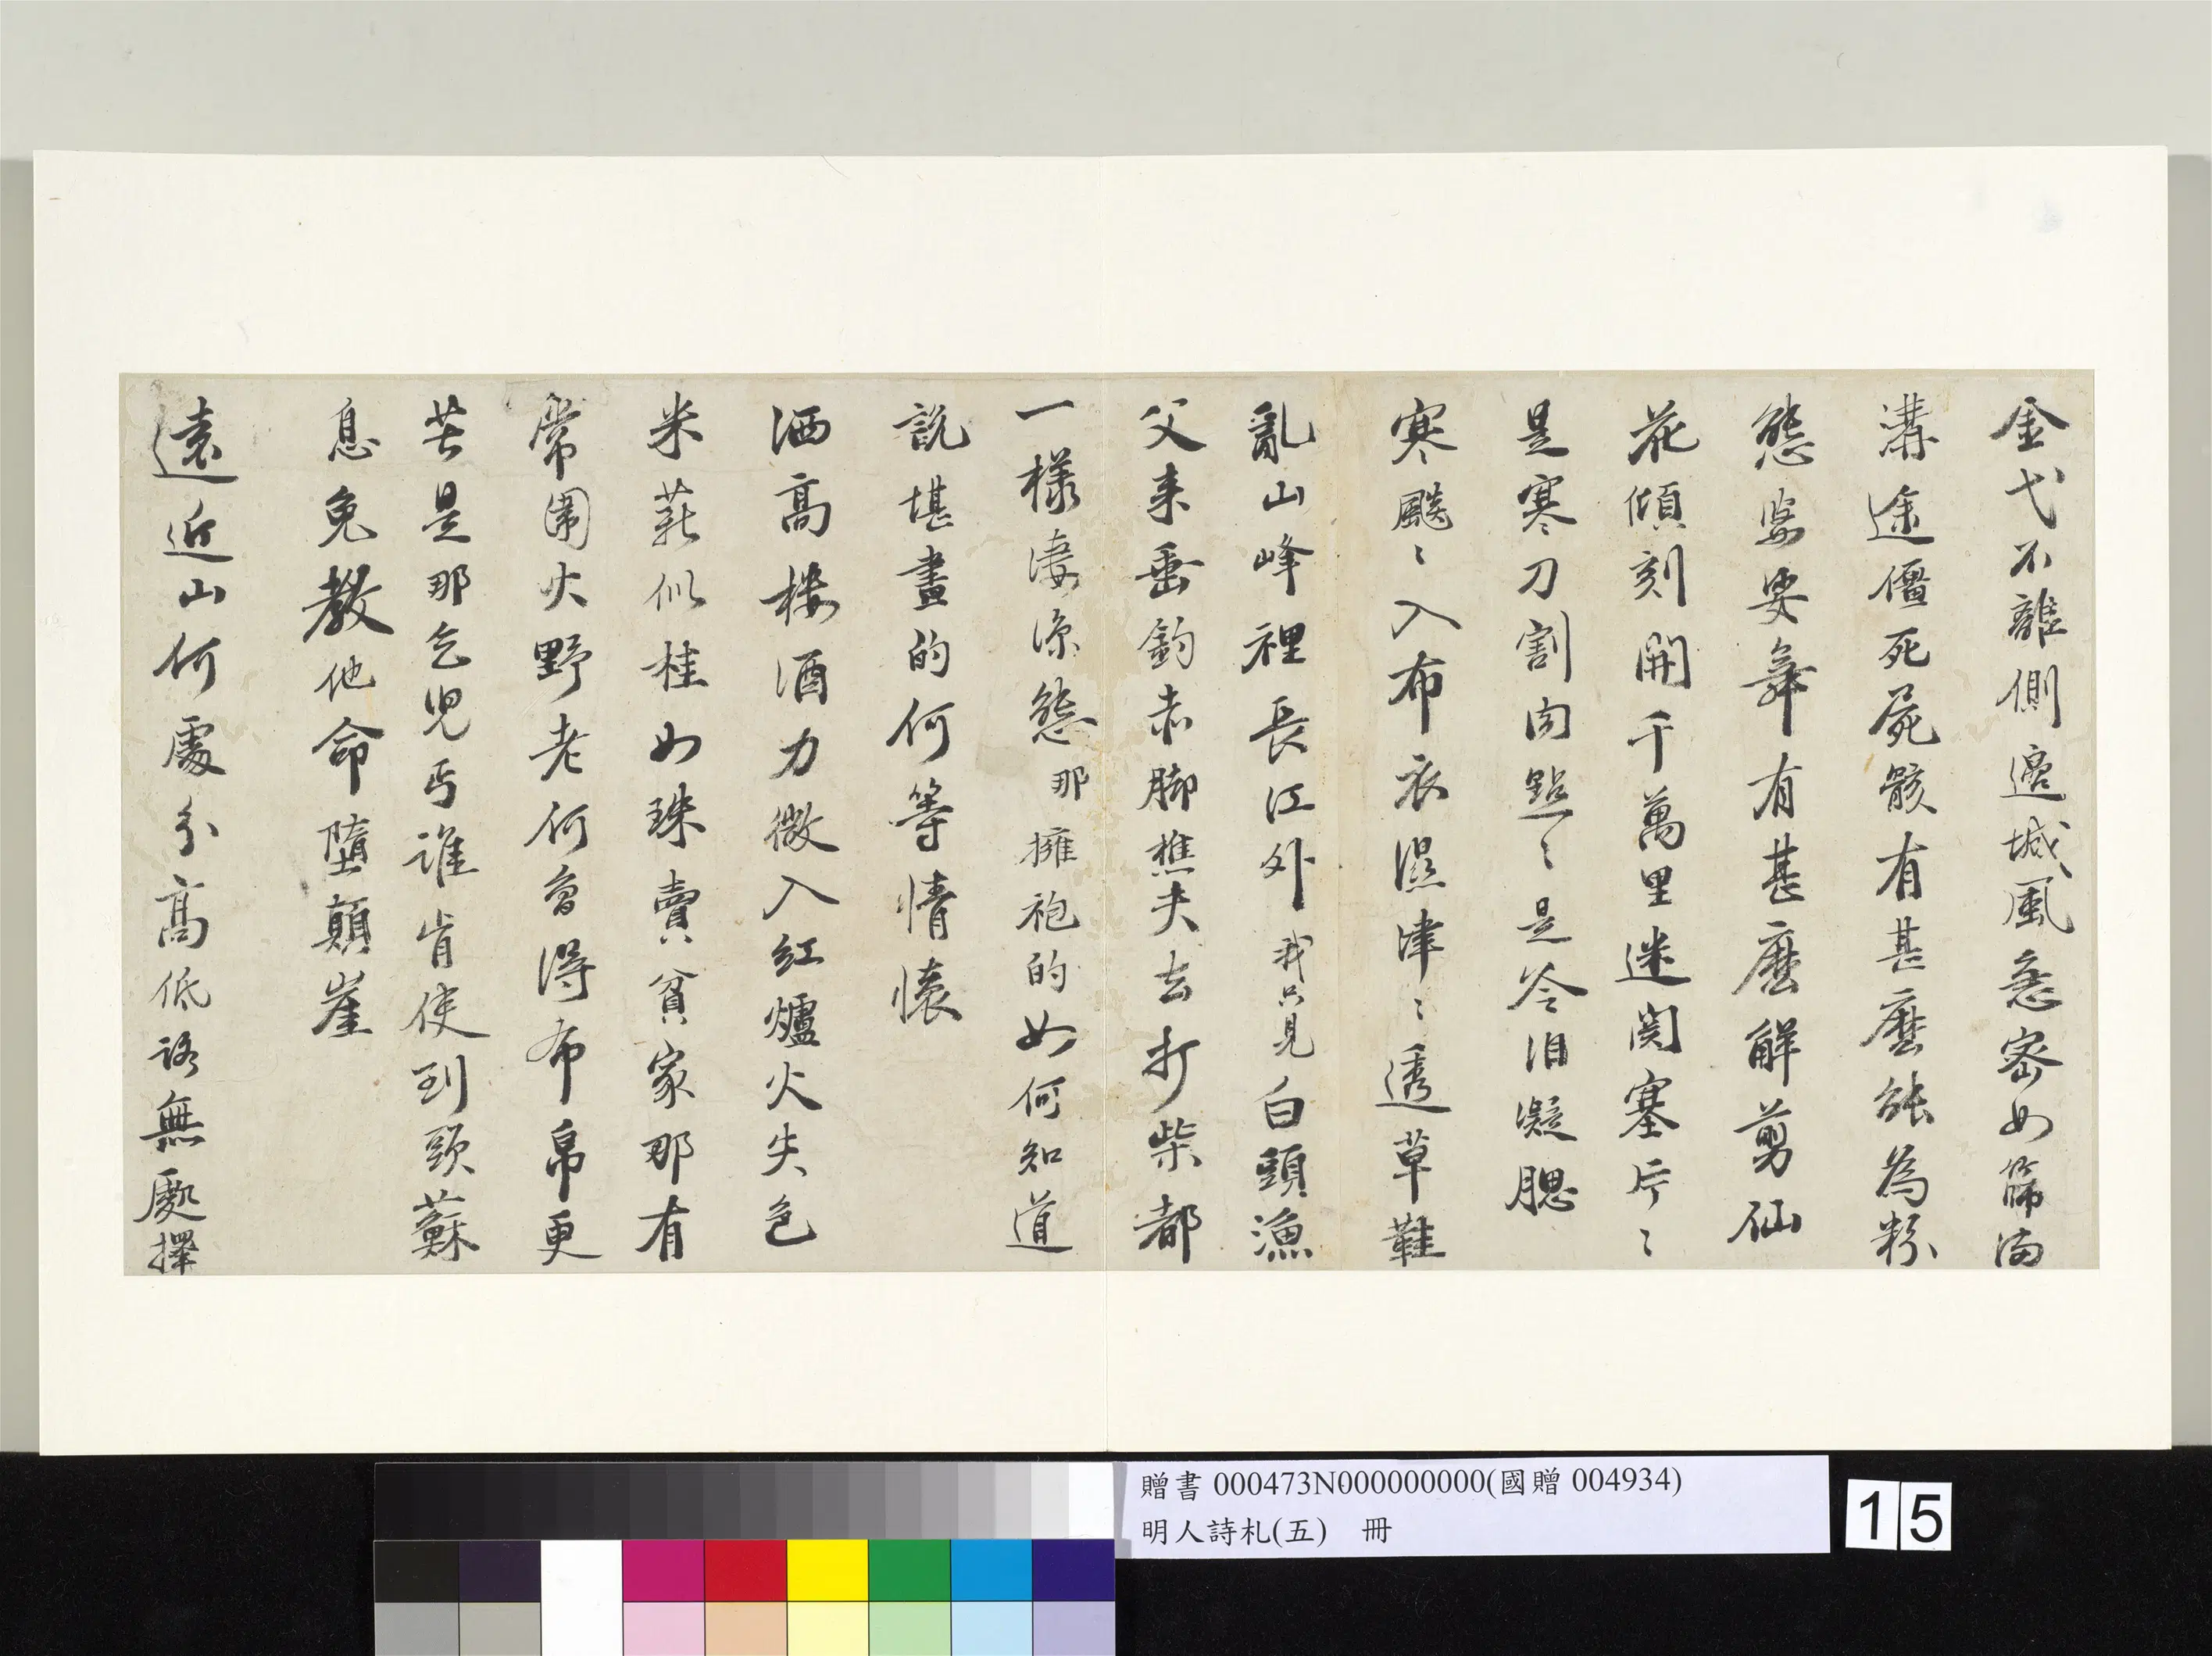 金戈不離側邊城風急密如篩滿
溝途僵死屍骸有甚麼能為粉
態要舞有甚麼解剪仙
花傾刻開千萬里迷関塞片〻
是寒刀割肉點〻是冷泪凝腮
寒颼〻入布衣濕津〻透草鞋
亂山峰裡長江外我只見白頭漁
父来垂釣赤脚樵夫去打柴都
一樣淒涼態那擁袍的如何知道
説堪畫的何等情懷
洒高楼酒力微入紅爐火失色
米薪似桂如珠賣貧家那有
常圍火野老何曾得布帛更
苦是那乞児丐誰肯使到頭蘇
息免教他命墮顛崖
遠近山何處分高低路無處擇
贈書 000473N000000000(國贈 004934)
明人詩札(五) 冊
15